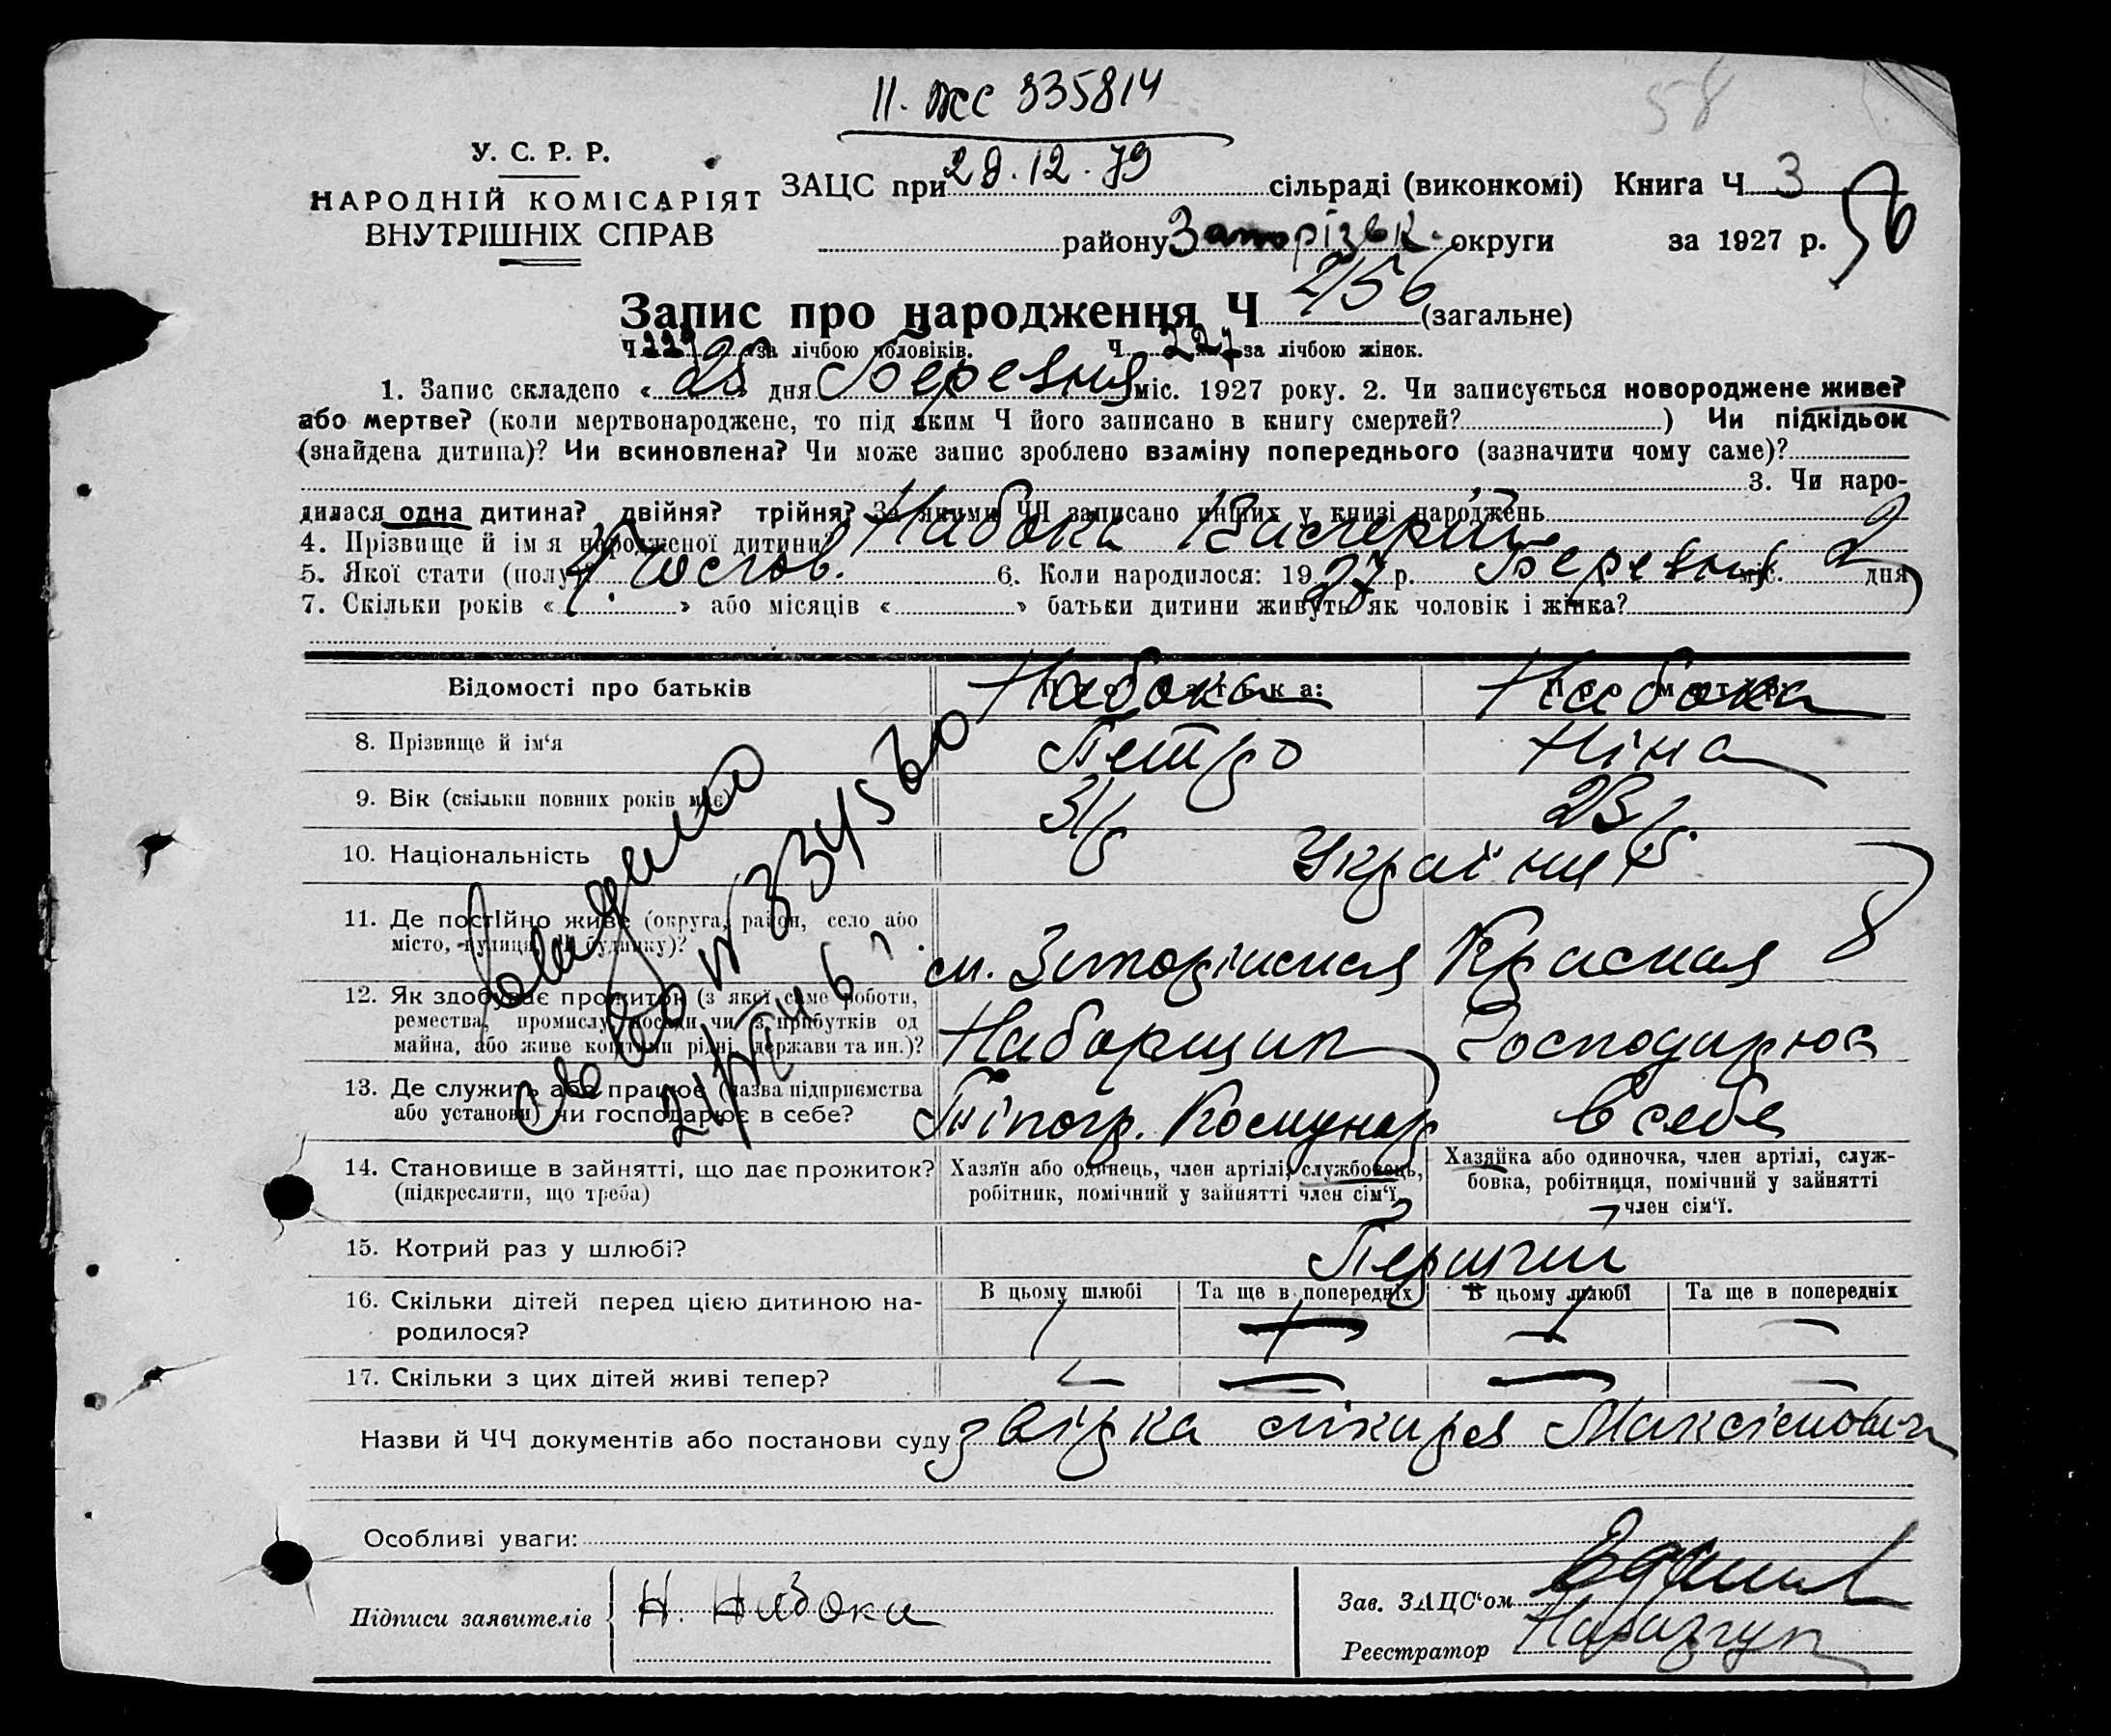 58
II. ЖС 335814
У. С. Р. Р.
НАРОДНІЙ КОМІСАРІЯТ
ВНУТРІШНІХ СПРАВ
ЗАЦС при 29.12.79 сільраді (виконкомі) Книга Ч 3
району Запорізьк. округи за 1927 р.
56
Запис про народження Ч 456 (загальне)
Ч 229 за лічбою чоловіків. Ч 227 за лічбою жінок.
1. Запис складено « 25 » дня Березня міс. 1927 року. 2. Чи записується новороджене живе?
або мертве? (коли мертвонароджене, то під яким Ч його записано в книгу смертей? ) Чи підкідьок
(знайдена дитина)? Чи всиновлена? Чи може запис зроблено взаміну попереднього (зазначити чому саме)?
3. Чи наро-
дилася одна дитина? двійня? трійня? За якими ЧЧ записано инших у книзі народжень
4. Прізвище й ім'я народженої дитини? Набока Валерій
5. Якої стати (полу)? Чолов. 6. Коли народилося: 1927 р. Березня міс. 2 дня
7. Скільки років « » або місяців « » батьки дитини живуть як чоловік і жінка?
Відомості про батьків Про батька: Про матір:
8. Прізвище й ім‘я Набока Петро Набока Ніна
9. Вік (скільки повних років має) 31 р 23 р.
10. Національність Україн
11. Де постійно живе (округа, район, село або
місто, вулиця, Ч будинку)? м. Запоріжжя Красная 8
12. Як здобуває прожиток (з якої саме роботи,
ремества, промислу, посади чи з прибутків од
майна, або живе коштами рідні, держави та ин.)? Наборщик Господарює
13. Де служить або працює (назва підприємства
або установи) чи господарює в себе? Тіпогр. Комунар в себе
14. Становище в зайнятті, що дає прожиток?
(підкреслити, що треба)
Хазяїн або одинець, член артілі, службовець,
робітник, помічний у зайнятті член сім‘ї.
Хазяйка або одиночка, член артілі, служ-
бовка, робітниця, помічний у зайнятті
член сім‘ї.
15. Котрий раз у шлюбі? Перший
16. Скільки дітей перед цією дитиною на-
родилося?
В цьому шлюбі Та ще в попередніх В цьому шлюбі Та ще в попередніх
17. Скільки з цих дітей живі тепер?
Назви й ЧЧ документів або постанови суду звірка лікаря Максімович
Особливі уваги:
Підписи заявителів Н. Набока
Зав. ЗАЦС‘ом
Реєстратор